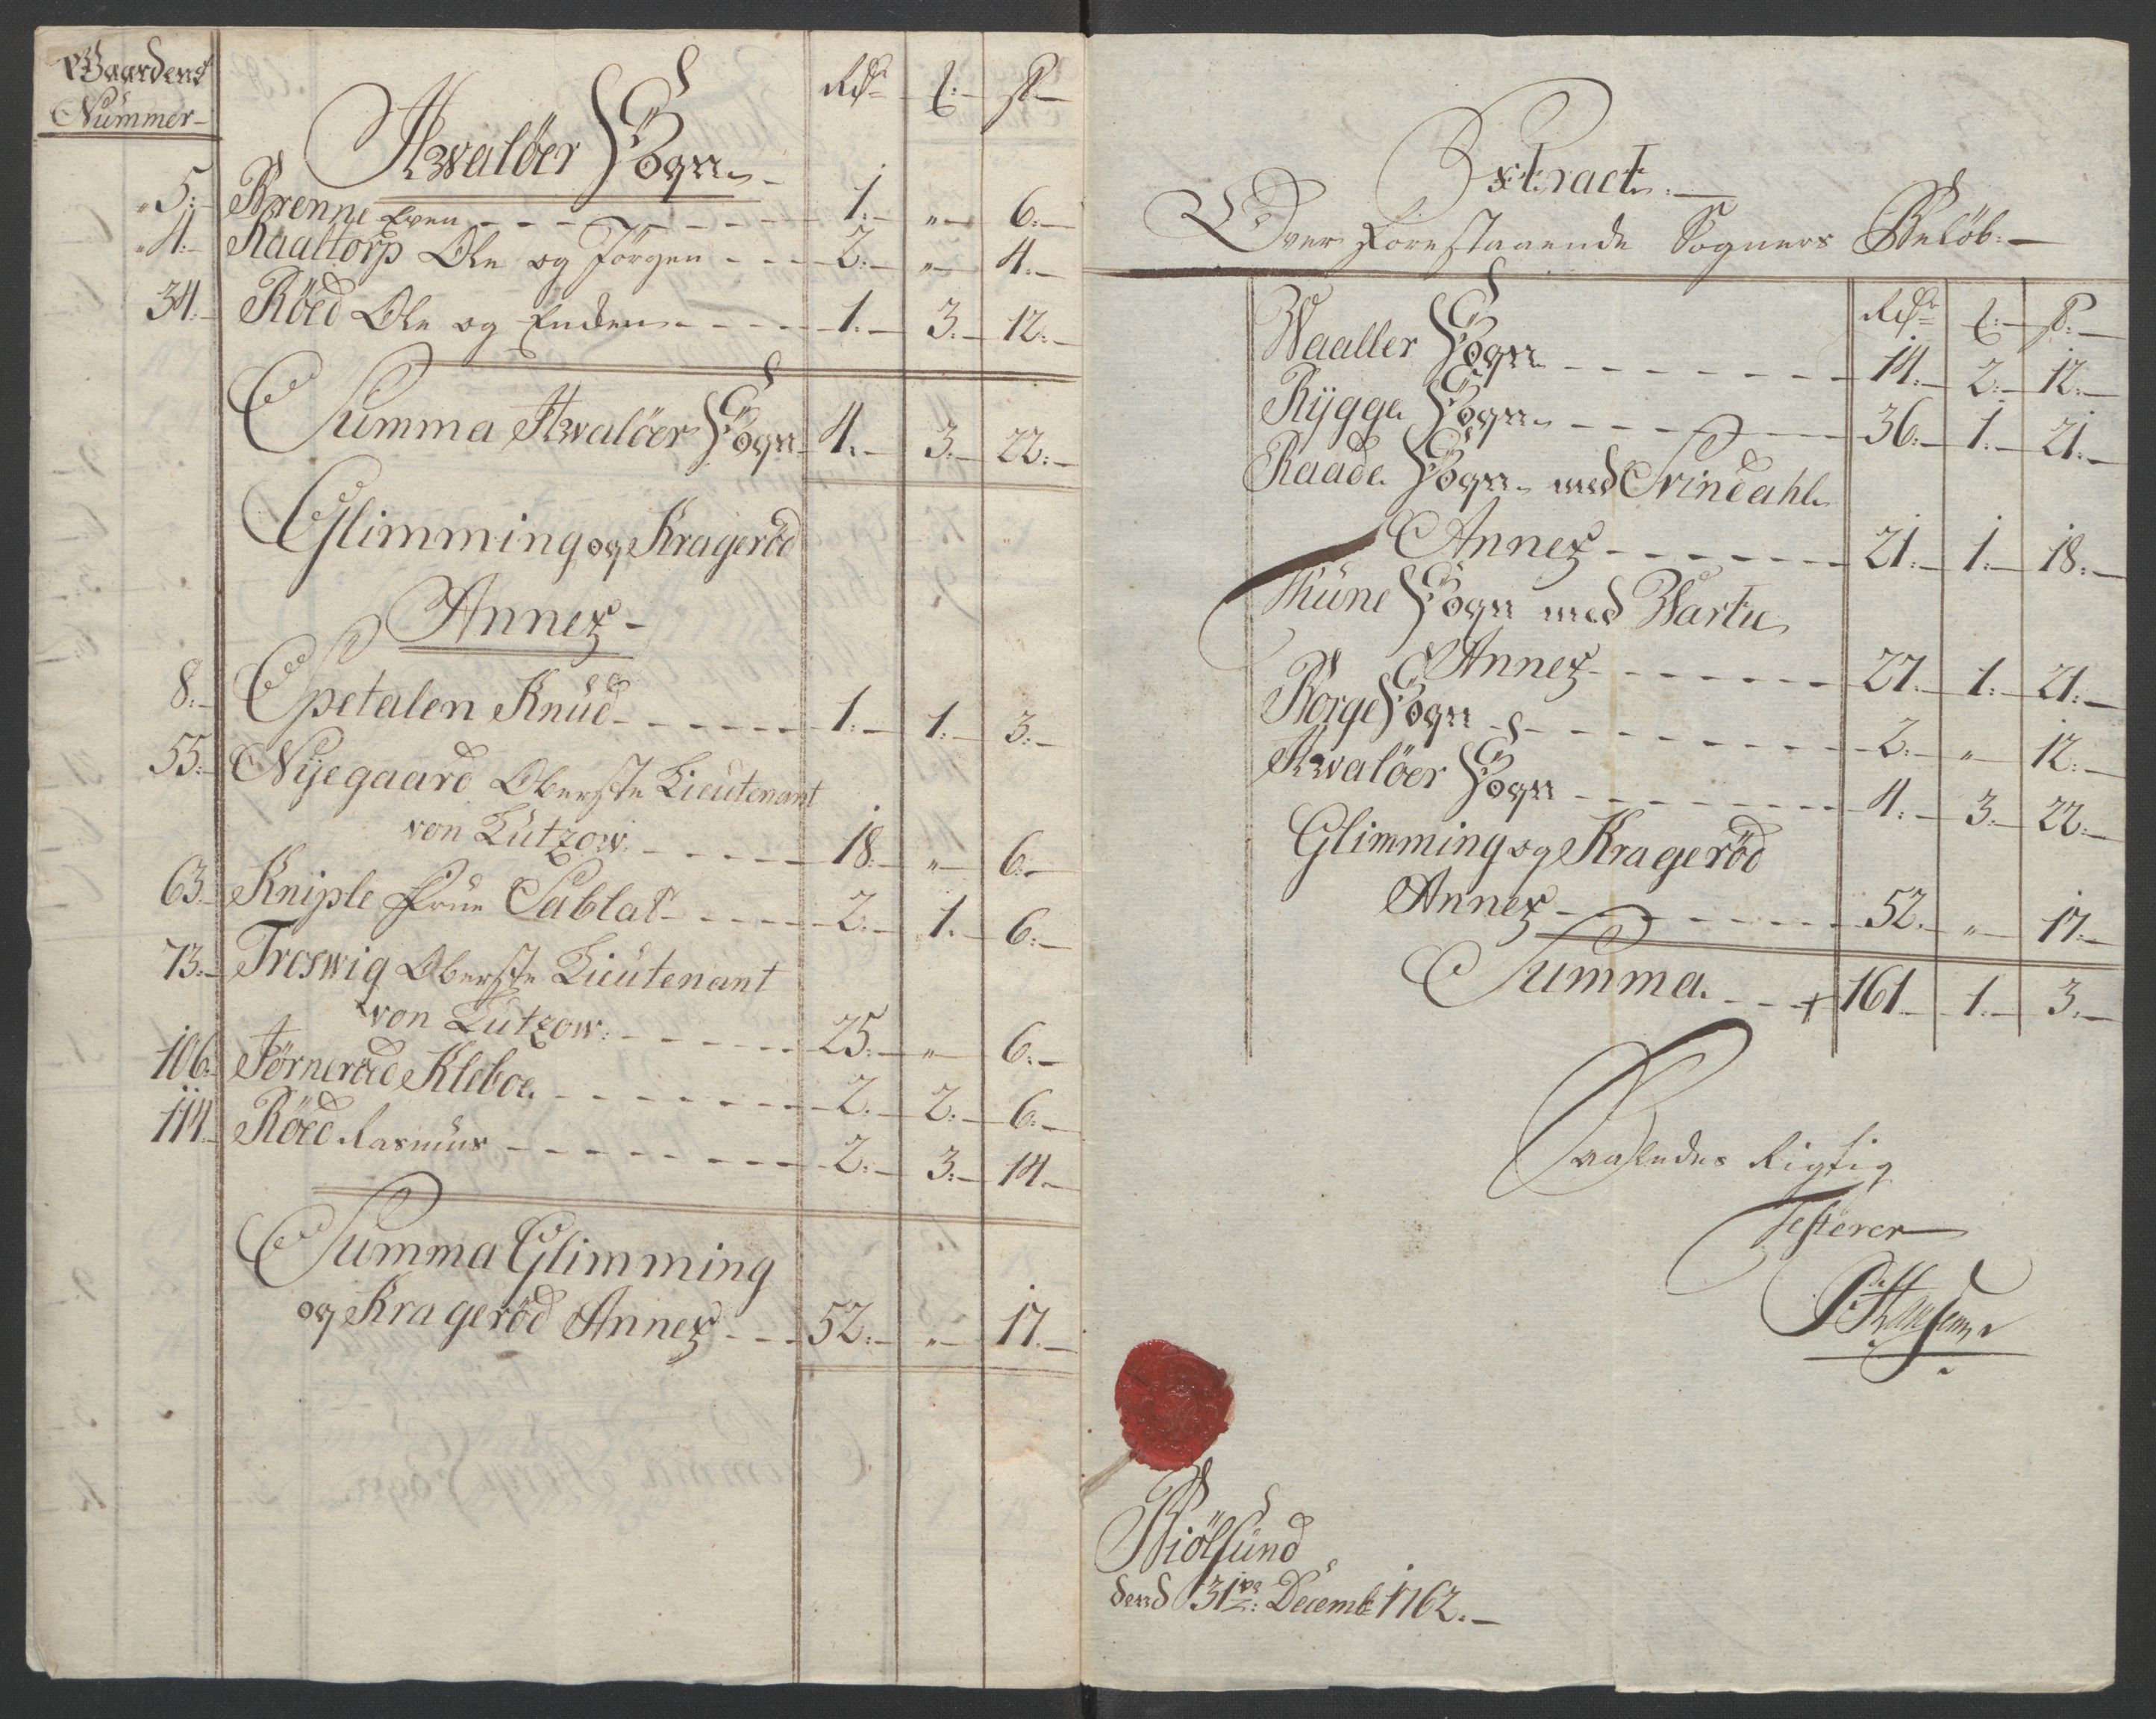 Gaardens
Nummer
Rdr ₰: ß
Hwalöer Sogn
5: Brenne Even 1. " 6.
4: Kaaltorp Ole og Jörgen 2. " 4.
34. Röed Ole og Enden 1. 3. 12.
Summa Hwalöer Sogn 4. 3. 22.
Glimming og Krageröd
Annex
8. Spetalen Knud 1. 1. 3.
55. Nÿegaard Oberste Lieutenant
von Lutzow 18. " 6.
63. Kniple Frue Sablat 2. 1. 6.
73. Troswig Oberste Lieutenant
von Lutzow 25. " 6.
106. Törneröed Kleboe 2. 2. 6.
114. Röed Rasmus 2. 3. 14.
Summa Glimming
og Krageröd Annex 52. " 17.
Extract
Over Forestaaende Sogners Belöb
Rdr ₰: ß
Waaller Sogn 14. 2. 12.
Rÿgge Sogn 36. 1. 21.
Raade Sogn med Svindahl
Annex 21. 1. 18.
Thune Sogn med Wartie
Annex 27. 1. 21.
Borge Sogn 2. " 12.
Hwalöer Sogn 4. 3. 22.
Glimming og Krageröd
Annex 52. " 17.
Summa 161. 1. 3.
Saaledes Rigtig
Testerer
Hansen
Biölsund
dend 31te Decemb: 1762.